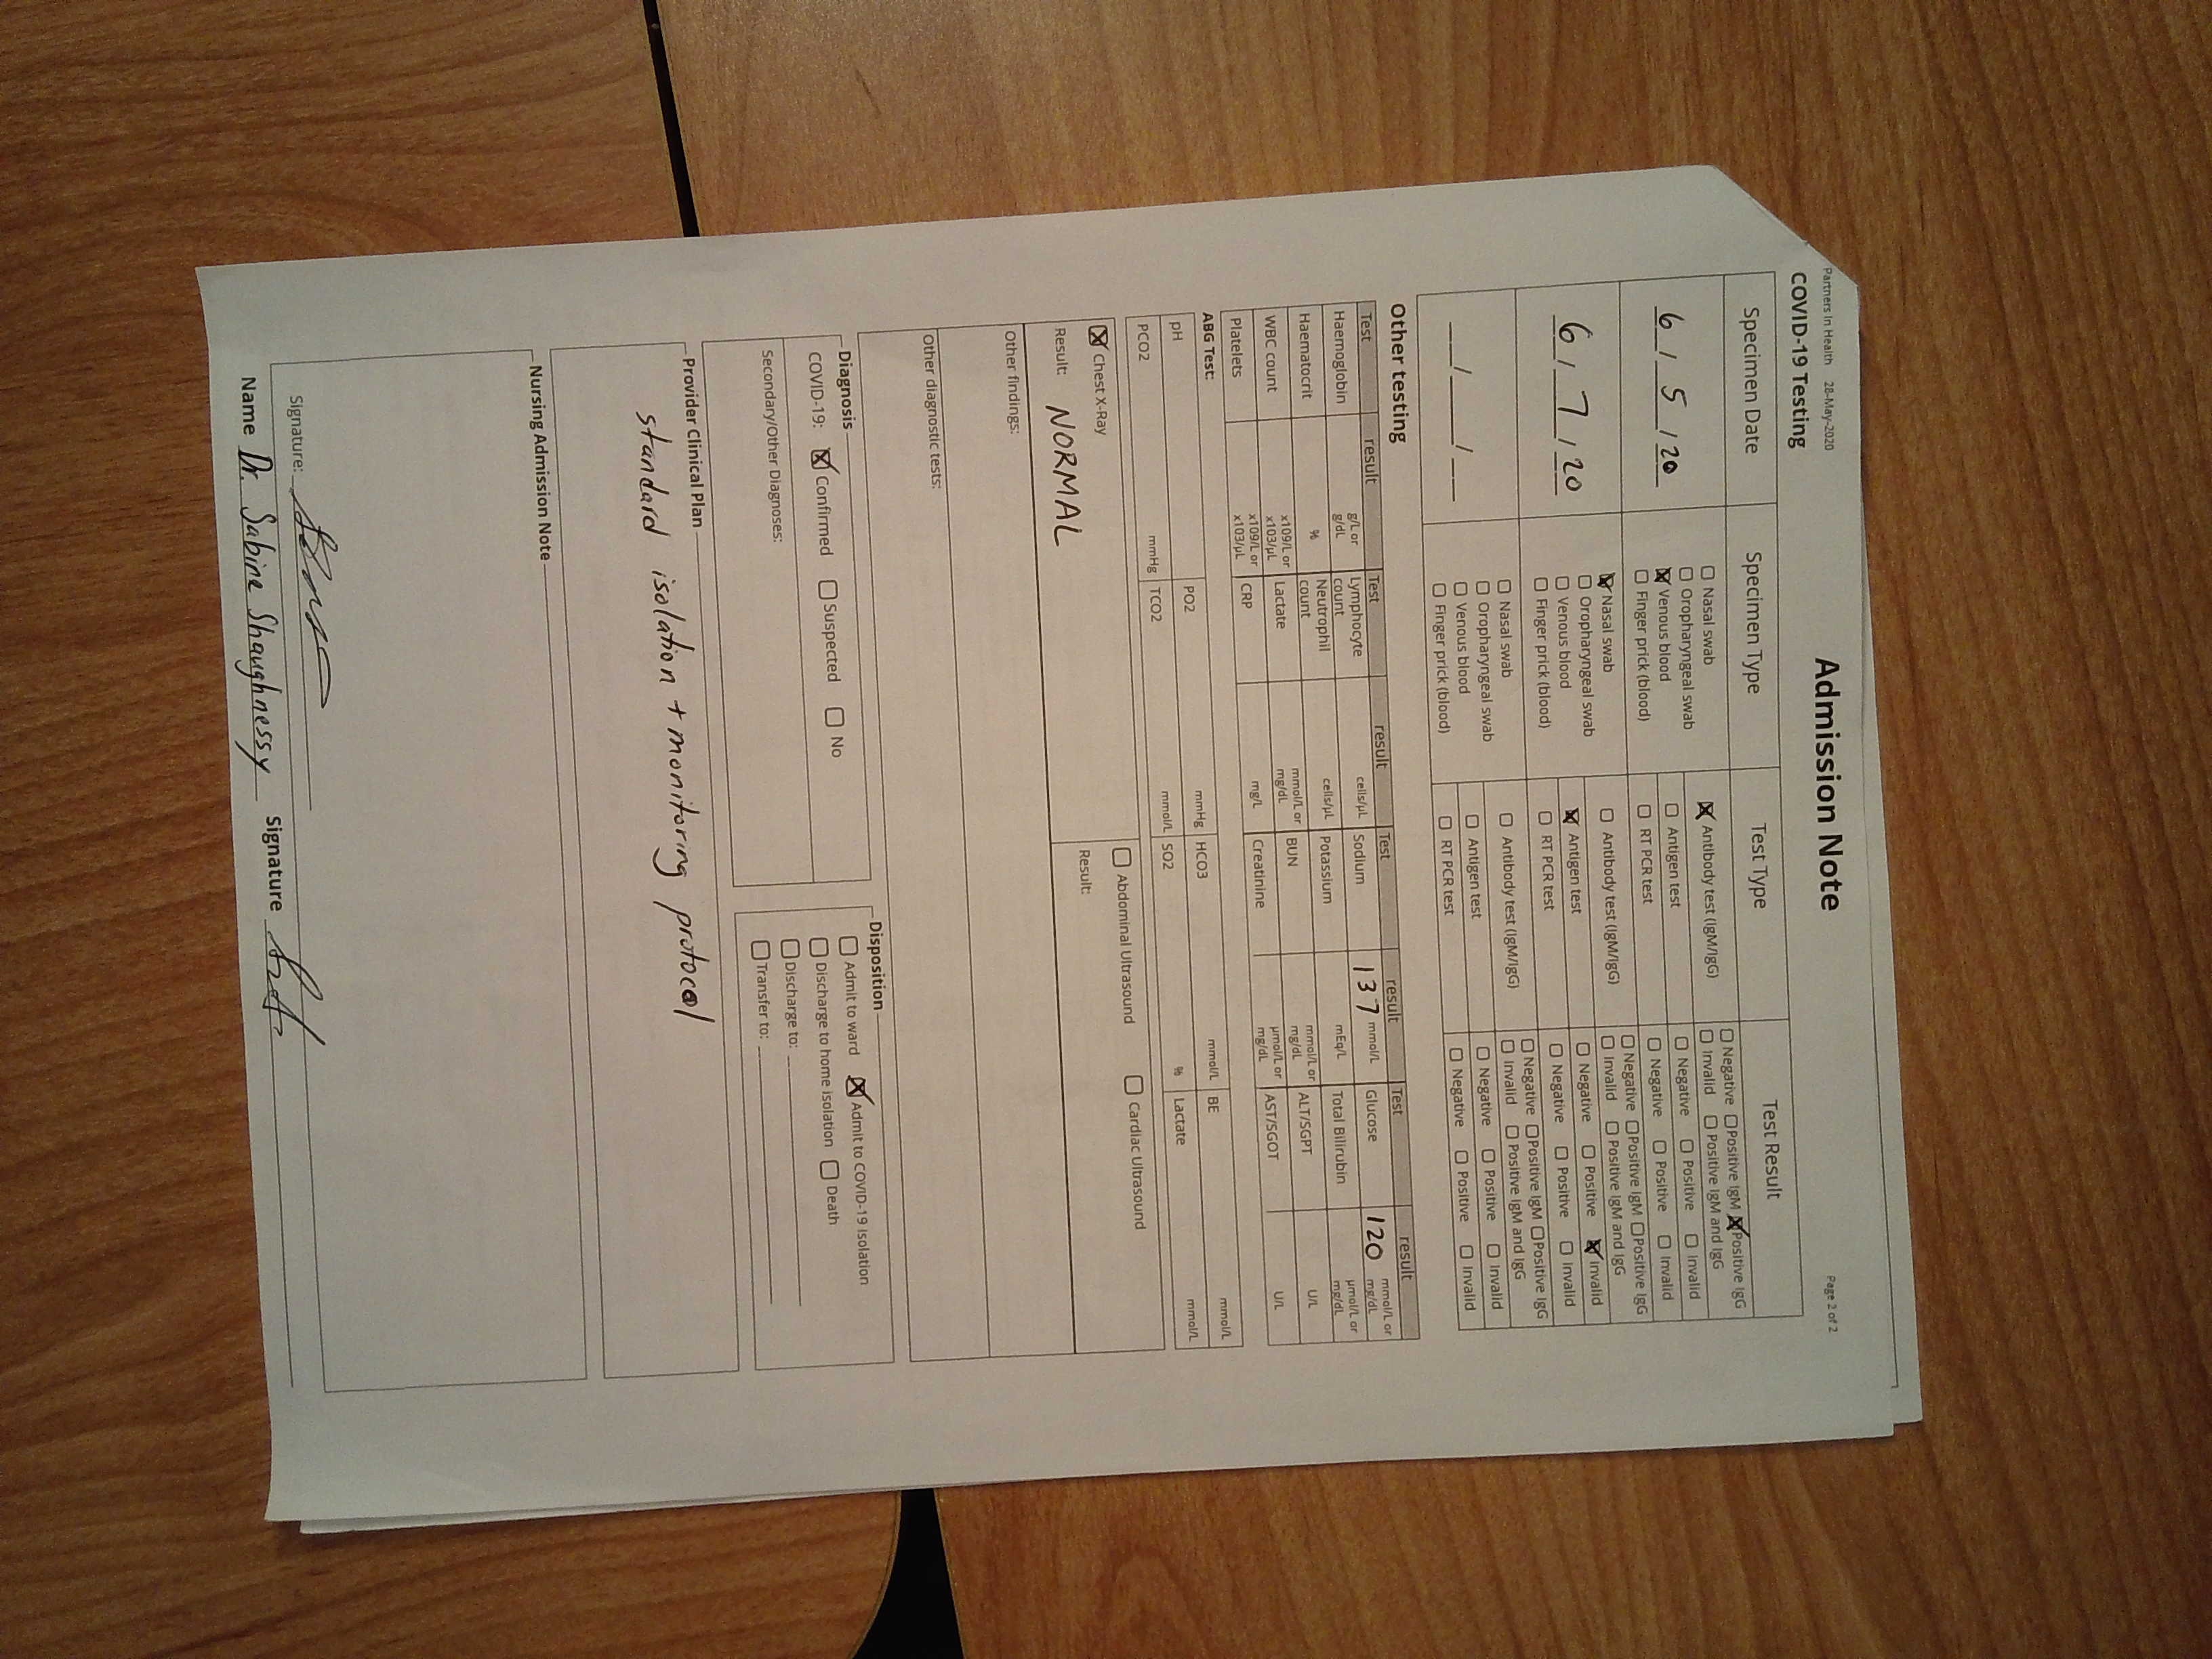 Partners In Health 28-May-2020 Page 2 of 2
Admission Note
COVID-19 Testing
Specimen Date Specimen Type Test Type Test Result
6 / 5 / 20
☐ Nasal swab
☐ Oropharyngeal swab
☒ Venous blood
☐ Finger prick (blood)
☒ Antibody test (IgM/IgG)
☐ Antigen test
☐ RT PCR test
☐ Negative ☐ Positive IgM ☒ Positive IgG
☐ Invalid ☐ Positive IgM and IgG
☐ Negative ☐ Positive ☐ Invalid
☐ Negative ☐ Positive ☐ Invalid
6 / 7 / 20
☒ Nasal swab
☐ Oropharyngeal swab
☐ Venous blood
☐ Finger prick (blood)
☐ Antibody test (IgM/IgG)
☒ Antigen test
☐ RT PCR test
☐ Negative ☐ Positive IgM ☐ Positive IgG
☐ Invalid ☐ Positive IgM and IgG
☐ Negative ☐ Positive ☒ Invalid
☐ Negative ☐ Positive ☐ Invalid
__/__/__
☐ Nasal swab
☐ Oropharyngeal swab
☐ Venous blood
☐ Finger prick (blood)
☐ Antibody test (IgM/IgG)
☐ Antigen test
☐ RT PCR test
☐ Negative ☐ Positive IgM ☐ Positive IgG
☐ Invalid ☐ Positive IgM and IgG
☐ Negative ☐ Positive ☐ Invalid
☐ Negative ☐ Positive ☐ Invalid
Other testing
Test result Test result Test result Test result
Haemoglobin g/L or g/dL Lymphocyte count cells/µL Sodium 137 mmol/L Glucose 120 mmol/L or mg/dL
Haematocrit % Neutrophil count cells/µL Potassium mEq/L Total Bilirubin µmol/L or mg/dL
WBC count x109/L or x103/µL Lactate mmol/L or mg/dL BUN mmol/L or mg/dL ALT/SGPT U/L
Platelets x109/L or x103/µL CRP mg/L Creatinine µmol/L or mg/dL AST/SGOT U/L
ABG Test:
pH PO2 mmHg HCO3 mmol/L BE mmol/L
PCO2 mmHg TCO2 mmol/L SO2 % Lactate mmol/L
☒ Chest X-Ray ☐ Abdominal Ultrasound ☐ Cardiac Ultrasound
Result: NORMAL Result:
Other findings:
Other diagnostic tests:
Diagnosis
COVID-19: ☒ Confirmed ☐ Suspected ☐ No
Secondary/Other Diagnoses:
Disposition
☐ Admit to ward ☒ Admit to COVID-19 Isolation
☐ Discharge to home isolation ☐ Death
☐ Discharge to:
☐ Transfer to:
Provider Clinical Plan
standard isolation + monitoring protocol
Nursing Admission Note
Signature:
Name Dr. Sabine Shaughnessy Signature